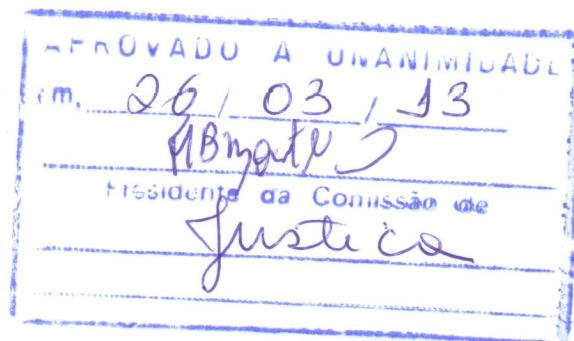 APROVADO A UNANIMIDADE
em, 26 / 03 / 13
Presidente da Comissão de
Justiça